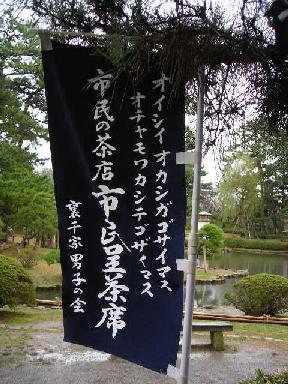 オイシイ オカシガゴサイマス
オチャモワカシテゴザイマス
市民の茶店 市民呈茶席
裏千家 男子の会